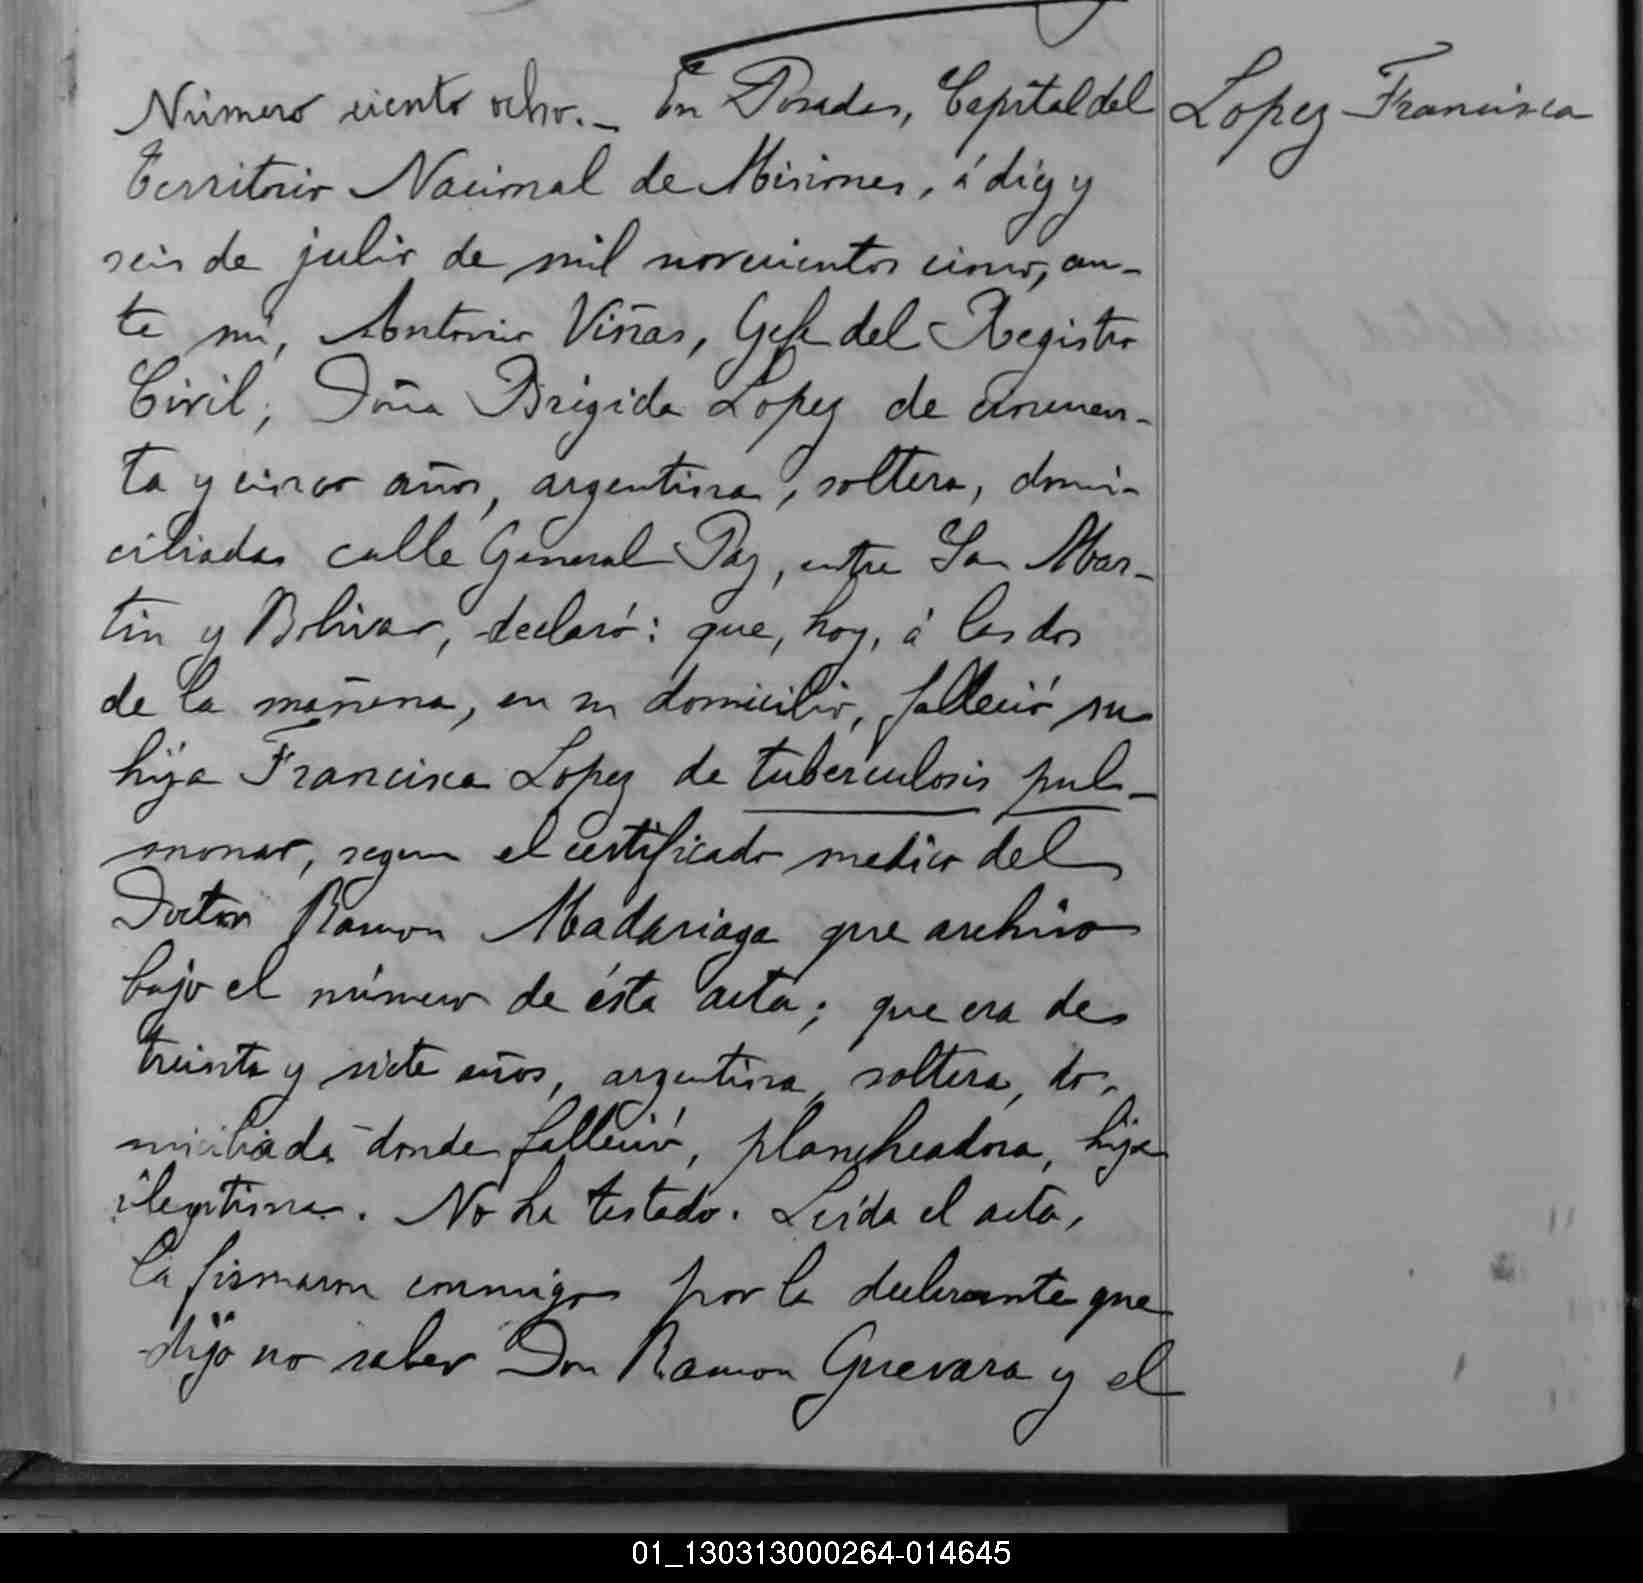 Número ciento ocho._ En Posadas, Capital del
Lopez Francisca
Territorio Nacional de Misiones, á diez y
seis de julio de mil novecientos cinco, an-
te mí, Antonio Viñas, Gefe del Registro
Civil, Doña Brigida Lopez de cincuen-
ta y cinco años, argentina, soltera, domi-
ciliada calle General Paz, entre San Mar-
tin y Bolivar, declaró: que, hoy, á las dos
de la mañana, en su domicilio, falleció su
hija Francisca Lopez de tuberculosis pul-
monar, segun el certificado medico del
Doctor Ramon Madariaga que archivo
bajo el número de ésta acta; que era de
treinta y siete años, argentina, soltera, do-
miciliada donde falleció, plancheadora, hija
ilegitima. No ha testado. Leída el acta,
la firmaron conmigo por la declarante que
dijo no saber Don Ramon Guevara y el
01_130313000264-014645